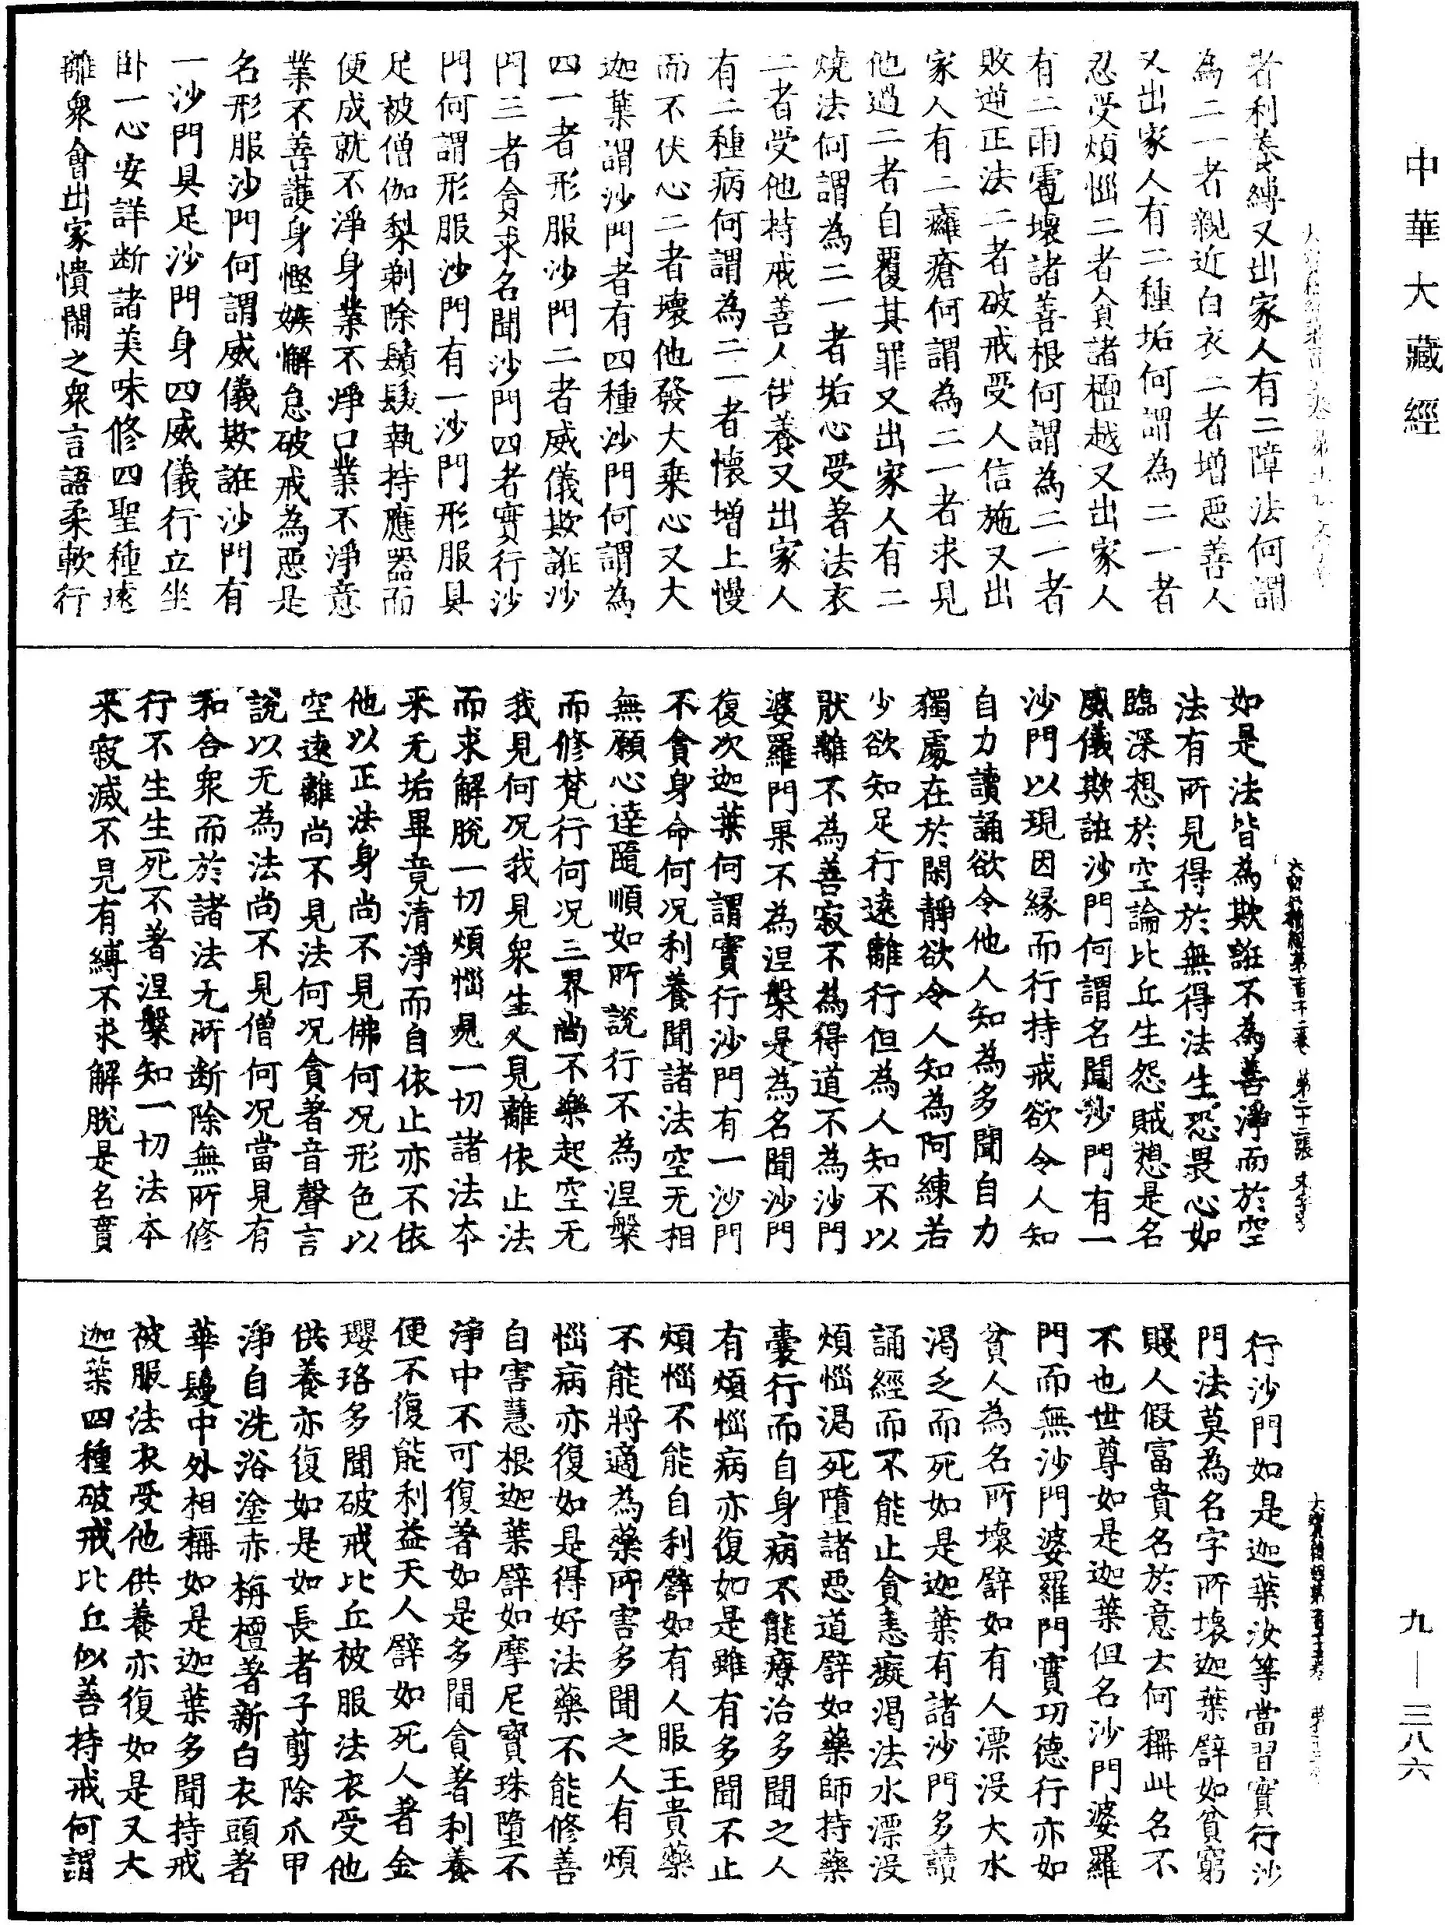 中華大藏經
者利養縛又出家人有二障法何謂
為二一者親近白衣二者增惡善人
又出家人有二種垢何謂為二一者
忍受煩惱二者貪諸檀越又出家人
有二雨雹壞諸善根何謂為二一者
敗逆正法二者破戒受人信施又出
家人有二癰瘡何謂為二一者求見
他過二者自覆其罪又出家人有二
燒法何謂為二一者垢心受著法衣
二者受他持戒善人供養又出家人
有二種病何謂為二一者懷增上慢
而不伏心二者壞他發大乘心又大
迦葉謂沙門者有四種沙門何謂為
四一者形服沙門二者威儀欺誑沙
門三者貪求名聞沙門四者實行沙
門何謂形服沙門有一沙門形服具
足被僧伽梨剃除鬚髮執持應器而
便成就不淨身業不淨口業不淨意
業不善護身慳嫉懈怠破戒為惡是
名形服沙門何謂威儀欺誑沙門有
一沙門具足沙門身四威儀行立坐
卧一心安詳断諸美味修四聖種遠
離衆會出家憒閙之衆言語柔軟行
如是法皆為欺誑不為善淨而於空
法有所見得於無得法生恐畏心如
臨深想於空論比丘生怨賊想是名
威儀欺誑沙門何謂名聞沙門有一
沙門以現因緣而行持戒欲令人知
自力讀誦欲令他人知為多聞自力
獨處在於閑靜欲令人知為阿練若
少欲知足行遠離行但為人知不以
猒離不為善寂不為得道不為沙門
婆羅門果不為涅槃是為名聞沙門
復次迦葉何謂實行沙門有一沙門
不貪身命何況利養聞諸法空无相
無願心達隨順如所說行不為涅槃
而修梵行何況三界尚不樂起空无
我見何況我見衆生人見離依止法
而求解脫一切煩惱見一切諸法本
来无垢畢竟清淨而自依止亦不依
他以正法身尚不見佛何況形色以
空遠離尚不見法何況貪著音聲言
說以无為法尚不見僧何況當見有
和合衆而於諸法无所断除無所修
行不生生死不著涅槃知一切法本
来寂滅不見有縛不求解脫是名實
行沙門如是迦葉汝等當習實行沙
門法莫為名字所壞迦葉譬如貧窮
賤人假富貴名於意云何稱此名不
不也世尊如是迦葉但名沙門婆羅
門而無沙門婆羅門實功德行亦如
貧人為名所壞譬如有人漂没大水
渴乏而死如是迦葉有諸沙門多讀
誦經而不能止貪恚癡渴法水漂没
煩惱渴死墮諸惡道譬如藥師持藥
囊行而自身病不能療治多聞之人
有煩惱病亦復如是雖有多聞不止
煩惱不能自利譬如有人服王貴藥
不能將適為藥所害多聞之人有煩
惱病亦復如是得好法藥不能修善
自害慧根迦葉譬如摩尼寶珠墮不
淨中不可復著如是多聞貪著利養
便不復能利益天人譬如死人著金
瓔珞多聞破戒比丘被服法衣受他
供養亦復如是如長者子剪除爪甲
淨自洗浴塗赤栴檀著新白衣頭著
華鬘中外相稱如是迦葉多聞持戒
被服法衣受他供養亦復如是又大
迦葉四種破戒比丘似善持戒何謂
九—三八六